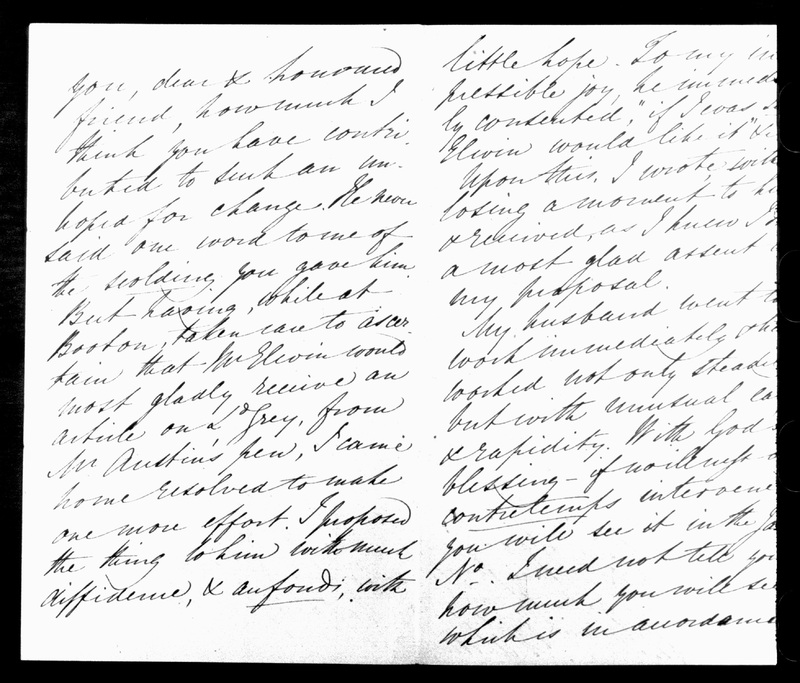 you, dear & honoured
friend, how much I
think you have contri-
buted to such an un-
hoped for change. He never
said one word to me of
the scolding you gave him.
But having, while at
Booton, taken care to ascer-
tain that Mr Elwin would
most gladly receive an
article on Ld Grey, from
Mr Austin's pen, I came
home resolved to make
one more effort. I proposed
the thing to him with much
diffidence, & au fonds, with
little hope. To my in
pressible joy, he immed
ly consented, "if I was s
Elwin would like it" &
Upon this, I wrote with
losing a moment to h
& received, as I knew I s
a most glad assent
my proposal.
My husband went to
work immediately & ha
worked not only steadi
but with unusual ca
& rapidity. With God's
blessing - if no illness o
contretemps intervene
you will see it in the Ja
No. I need not tell you
how much you will se
which is in accordance